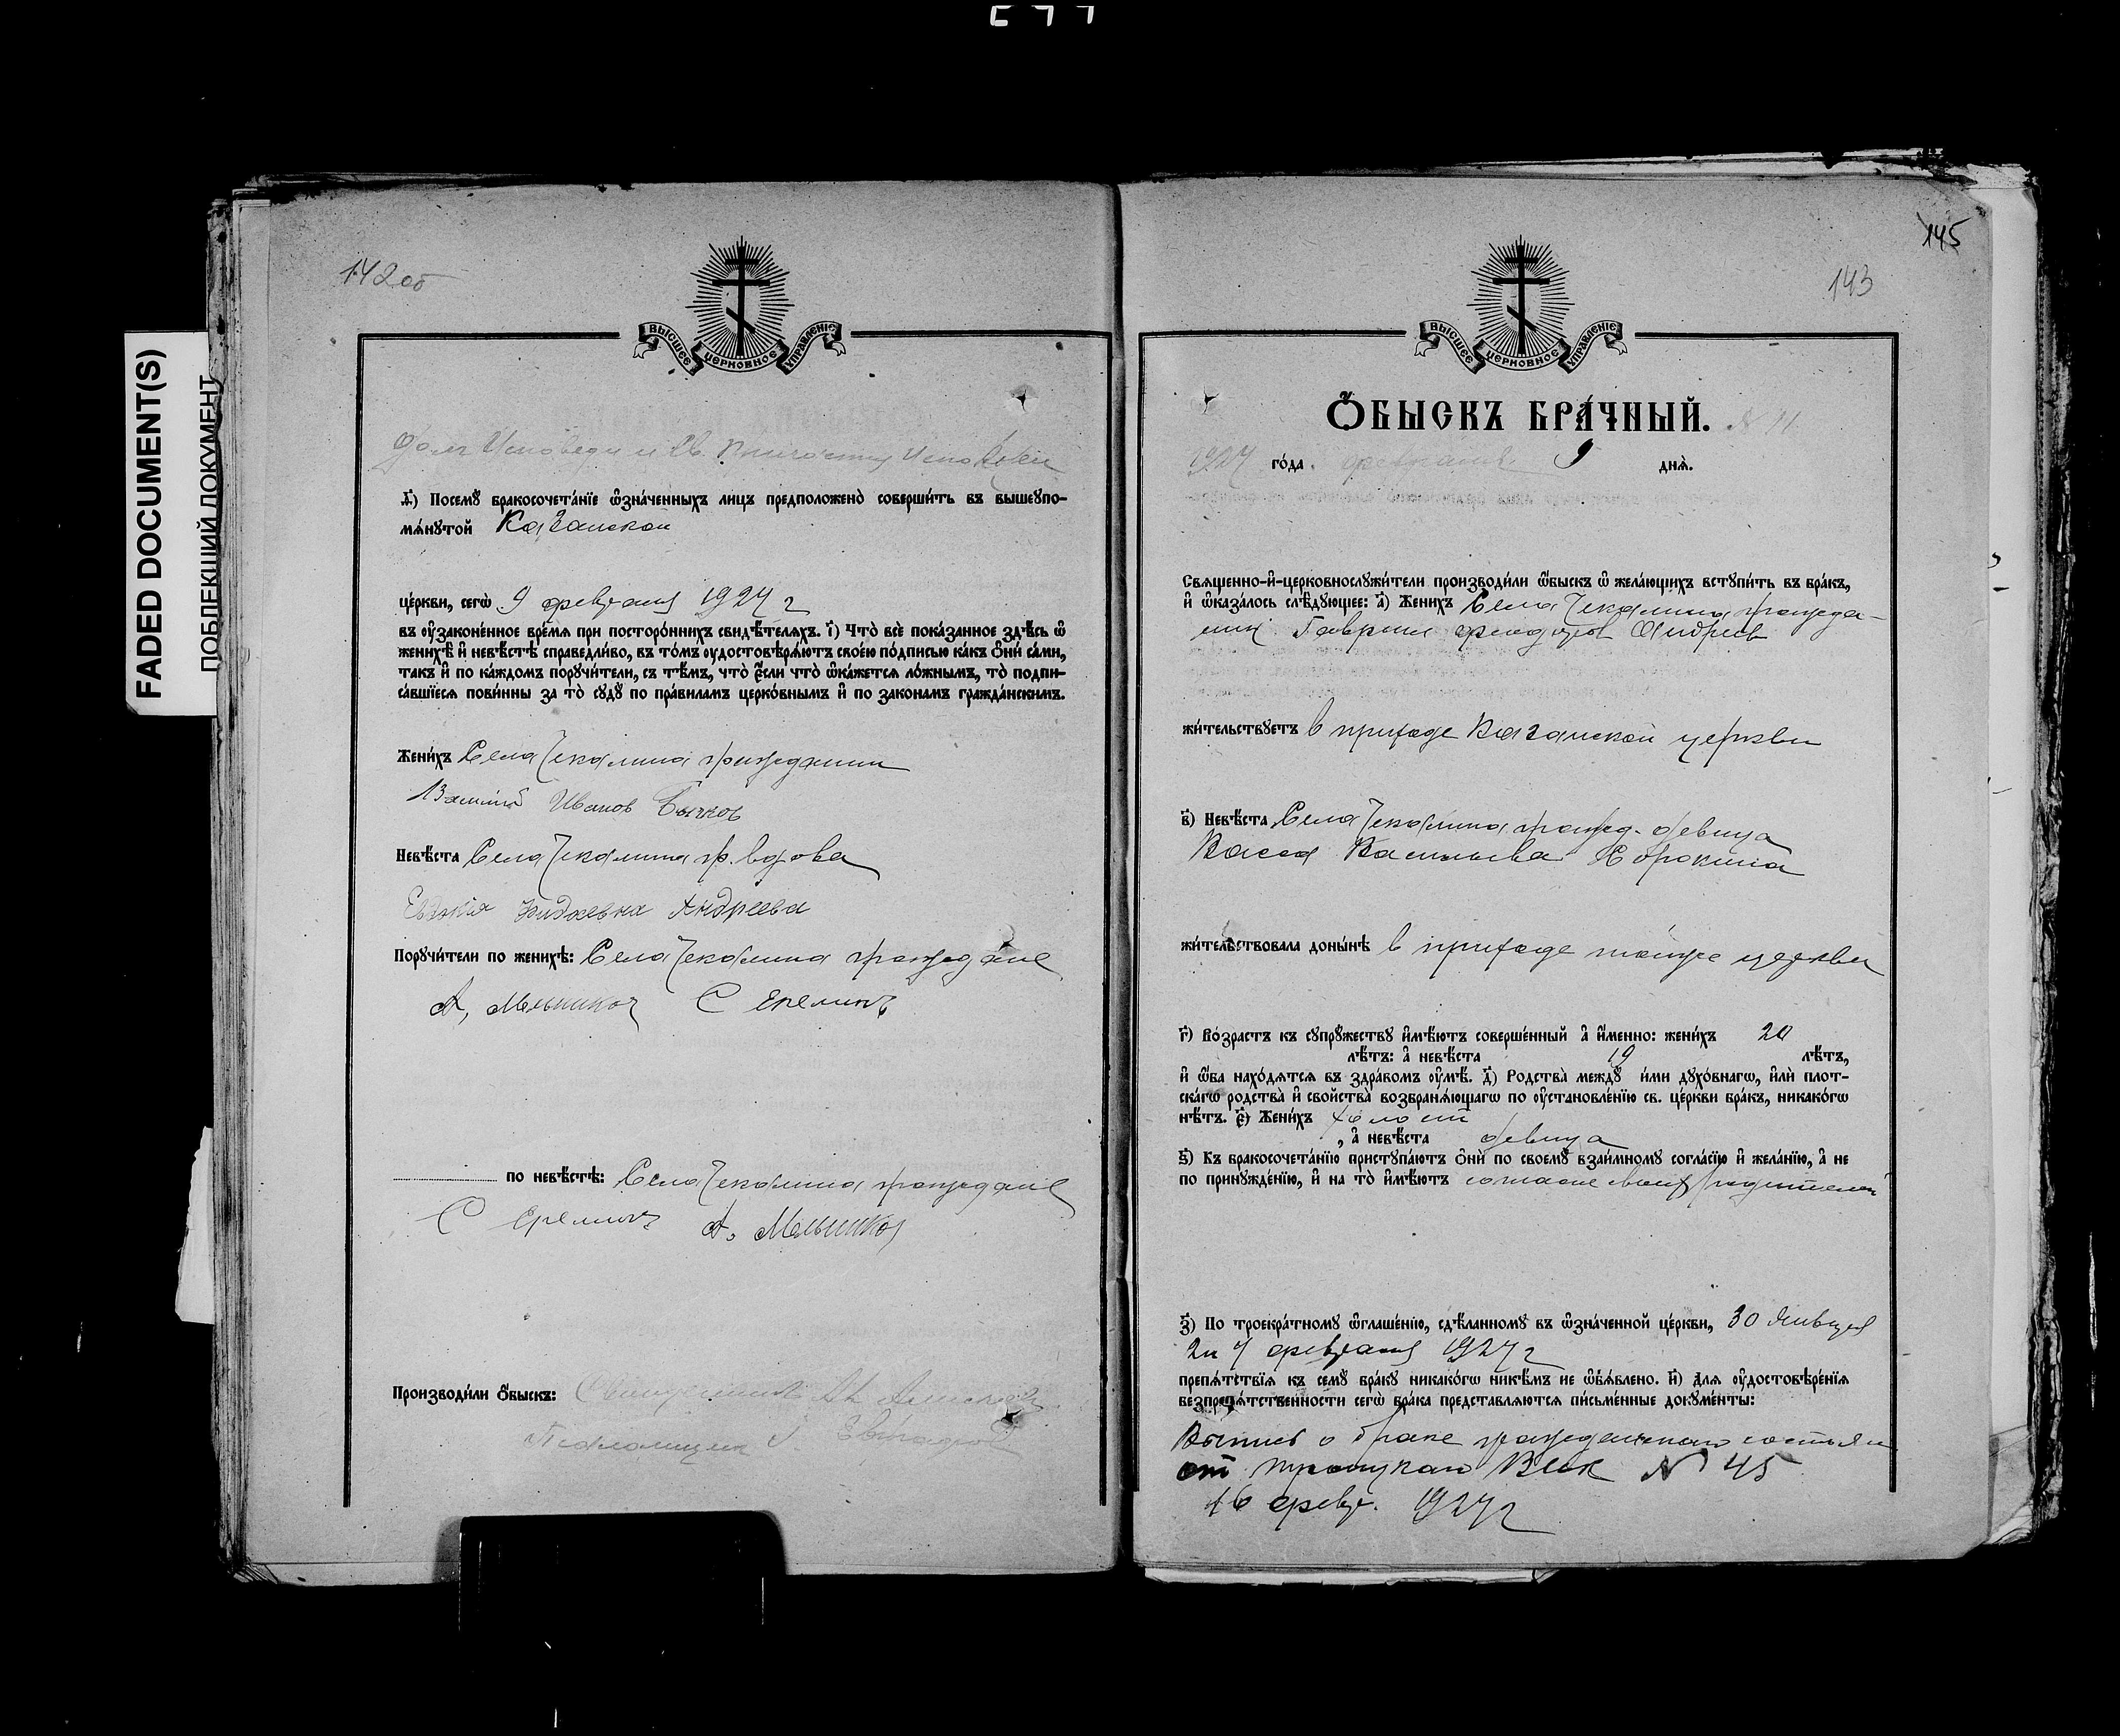 FADED DOCUMENT(S)
ПОБЛЕКШИЙ ДОКУМЕНТ
142об
ВЫСШЕЕ ЦЕРКОВНОЕ УПРАВЛЕНІЕ
долг Исповеди и Св.
Ѳ҃) Посемꙋ бракосочета́нїе ѡ҆зна́ченныхъ лицъ предположено̀ соверши́ть въ вышеꙋпо-
мѧ́нꙋтой Казанской
це́ркви, сегѡ̀ 9 февраля 1924 г
въ ᲂу҆зако́ненное вре́мѧ при посторо́ннихъ свидѣ́телѧхъ. І҃) Что̀ всѐ пока́занное здѣ́сь ѡ҆
женихѣ̀ и҆ невѣ́стѣ справедли́во, въ то́мъ ᲂу҆достовѣрѧ́ютъ свое́ю по́дписью ка́къ ѻ҆нѝ са́ми,
та́къ и҆ по ка́ждомъ порꙋчи́тели, съ тѣ́мъ, что̀ є҆́сли что̀ ѡ҆ка́жетсѧ ло́жнымъ, то̀ подпи-
са́вшїесѧ пови́нны за то̀ сꙋдꙋ̀ по пра́виламъ церко́внымъ и҆ по зако́намъ гражда́нскимъ.
Жени́хъ Села Чекалина гражданин
Иванов Бычков
Невѣ́ста Села Чекалина гр. вдова
Евдокія Андреева
Порꙋчи́тели по женихѣ̀: Села Чекалина граждане
А. Мельников С Еремин
по невѣ́стѣ: Села Чекалина граждане
С Еремин А. Мельников
Производи́ли ѻ҆́быскъ: Священник
Псаломщик
145
143
ВЫСШЕЕ ЦЕРКОВНОЕ УПРАВЛЕНІЕ
Ѻ҆́БЫСКЪ БРА́ЧНЫЙ. N 11
1924 го́да. февраля 9 днѧ̀.
Свѧще́нно-и҆-церковнослꙋжи́тели производи́ли ѻ҆́быскъ ѡ҆ жела́ющихъ встꙋпи́ть въ бра́къ,
и҆ ѡ҆каза́лось слѣ́дꙋющее: а҃) Жени́хъ Села Чекалина гражда-
нин Гавриил Андреев
жи́тельствꙋетъ в приходе Казанской церкви
в҃) Невѣ́ста Села Чекалина гражд. девица
Васса Васильева Сорокина
жи́тельствовала доны́нѣ в приходе тойже церкви
г҃) Во́зрастъ къ сꙋпрꙋ́жествꙋ и҆мѣ́ютъ соверше́нный а҆ и҆́менно: жени́хъ 20
лѣ́тъ: а҆ невѣ́ста 19 лѣ́тъ,
и҆ ѻ҆́ба нахо́дѧтсѧ въ здра́вомъ ᲂу҆мѣ̀. д҃) Родства̀ междꙋ̀ и́ми дꙋхо́внагѡ, и҆лѝ плот-
ска́гѡ родства̀ и҆ сво́йства возбранѧ́ющагѡ по ᲂу҆становле́нїю св. це́ркви бра́къ, никако́гѡ
нѣ́тъ. є҃) Жени́хъ холост
, а҆ невѣ́ста девица
ѕ҃) Къ бракосочета́нїю пристꙋпа́ютъ ѻ҆нѝ по своемꙋ̀ взаи́мномꙋ согла́сїю и҆ жела́нїю, а҆ не
по принꙋжде́нїю, и҆ на то̀ и҆мѣ́ютъ согласие своих родителей
з҃) По троекра́тномꙋ ѡ҆глаше́нїю, сдѣ́ланномꙋ въ ѡ҆зна́ченной це́ркви, 30 Января
2 и 4 февраля 1924 г
препѧ́тствїѧ къ семꙋ̀ бра́кꙋ никако́гѡ никѣ́мъ не ѡ҆б̾ѧ́влено. и҃) Длѧ ᲂу҆достовѣре́нїѧ
безпрепѧ́тственности сегѡ̀ бра́ка представлѧ́ютсѧ пи́сьменные докꙋме́нты:
Выпись о браке гражданскаго состоян
от Троицкаго ВИК N 45
16 февр. 1924 г